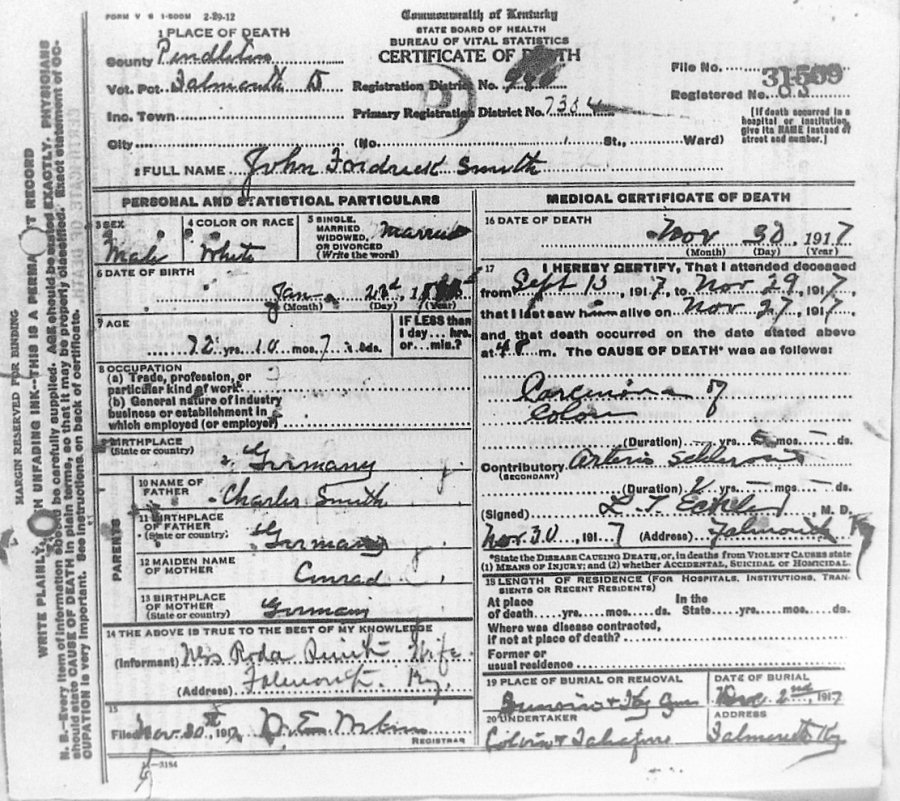 FORM V S 1-500M 2-29-12
Commonwealth of Kentucky
STATE BOARD OF HEALTH
BUREAU OF VITAL STATISTICS
CERTIFICATE OF DEATH
1 PLACE OF DEATH
County Pendleton
Vot. Pct Falmouth D
Inc. Town
City (No. St., Ward)
Registration District No.
Primary Registration District No. 7384
File No. 31509
Registered No. 83
[If death occurred in a
hospital or institution,
give its NAME instead of
street and number.]
2 FULL NAME John Fordrick Smith
PERSONAL AND STATISTICAL PARTICULARS
3 SEX
Male
4 COLOR OR RACE
White
5 SINGLE,
MARRIED
WIDOWED,
OR DIVORCED
(Write the word)
Married
6 DATE OF BIRTH
Jan 23d, 18
(Month) (Day) (Year)
7 AGE
72 yrs. 10 mos. 7 ds.
IF LESS than
1 day hrs.
or min.?
8 OCCUPATION
(a) Trade, profession, or
particular kind of work
(b) General nature of industry
business or establishment in
which employed (or employer)
9 BIRTHPLACE
(State or country)
Germany
PARENTS
10 NAME OF
FATHER
Charles Smith
11 BIRTHPLACE
OF FATHER
(State or country)
Germany
12 MAIDEN NAME
OF MOTHER
Conrad
13 BIRTHPLACE
OF MOTHER
(State or country)
Germany
14 THE ABOVE IS TRUE TO THE BEST OF MY KNOWLEDGE
(Informant) Mrs Roda Smith Wife
(Address) Falmouth Ky.
15
Filed Nov. 30th 1917
REGISTRAR
MEDICAL CERTIFICATE OF DEATH
16 DATE OF DEATH
Nov 30, 1917
(Month) (Day) (Year)
17 I HEREBY CERTIFY, That I attended deceased
from Sept 13, 1917, to Nov 29, 1917,
that I last saw him alive on Nov 27, 1917,
and that death occurred on the date stated above
at m. The CAUSE OF DEATH* was as follows:
Carcinoma of
Colon
(Duration) yrs. 5 mos. ds.
Contributory Arterio Sclerosis
(SECONDARY)
(Duration) 2 yrs. mos. ds.
(Signed) M. D.
Nov. 30, 1917 (Address) Falmouth
*State the DISEASE CAUSING DEATH, or, in deaths from VIOLENT CAUSES state
(1) MEANS OF INJURY; and (2) whether ACCIDENTAL, SUICIDAL OR HOMICIDAL.
18 LENGTH OF RESIDENCE (FOR HOSPITALS, INSTITUTIONS, TRAN-
SIENTS OR RECENT RESIDENTS)
At place In the
of death yrs. mos. ds. State yrs. mos. ds.
Where was disease contracted,
if not at place of death?
Former or
usual residence
19 PLACE OF BURIAL OR REMOVAL
DATE OF BURIAL
Dec. 2nd, 1917
20 UNDERTAKER
Colvin &
ADDRESS
Falmouth Ky
3184
MARGIN RESERVED FOR BINDING
WRITE PLAINLY, UNFADING INK--THIS IS A PERMA T RECORD
N. B.--Every item of information should be carefully supplied. AGE should be stated EXACTLY. PHYSICIANS
should state CAUSE OF DEATH in plain terms, so that it may be properly classified. Exact statement of OC-
CUPATION is very important. See instructions on back of certificate.